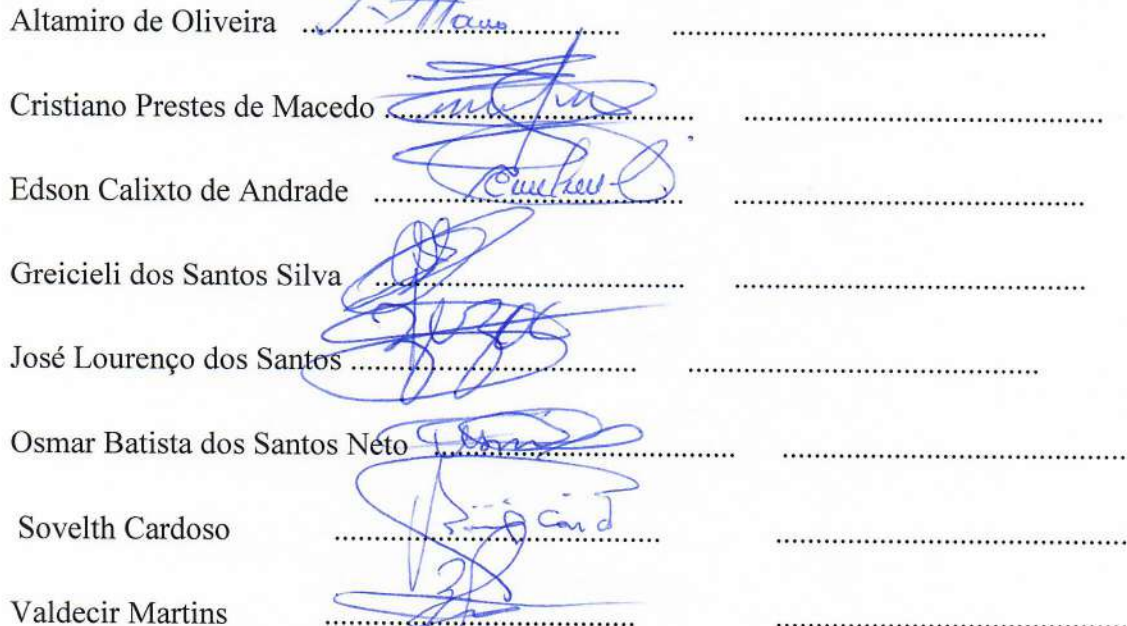 Altamiro de Oliveira ........................................ ........................................
Cristiano Prestes de Macedo ........................................ ........................................
Edson Calixto de Andrade ........................................ ........................................
Greicieli dos Santos Silva ........................................ ........................................
José Lourenço dos Santos ........................................ ........................................
Osmar Batista dos Santos Neto ........................................ ........................................
Sovelth Cardoso ........................................ ........................................
Valdecir Martins ........................................ ........................................